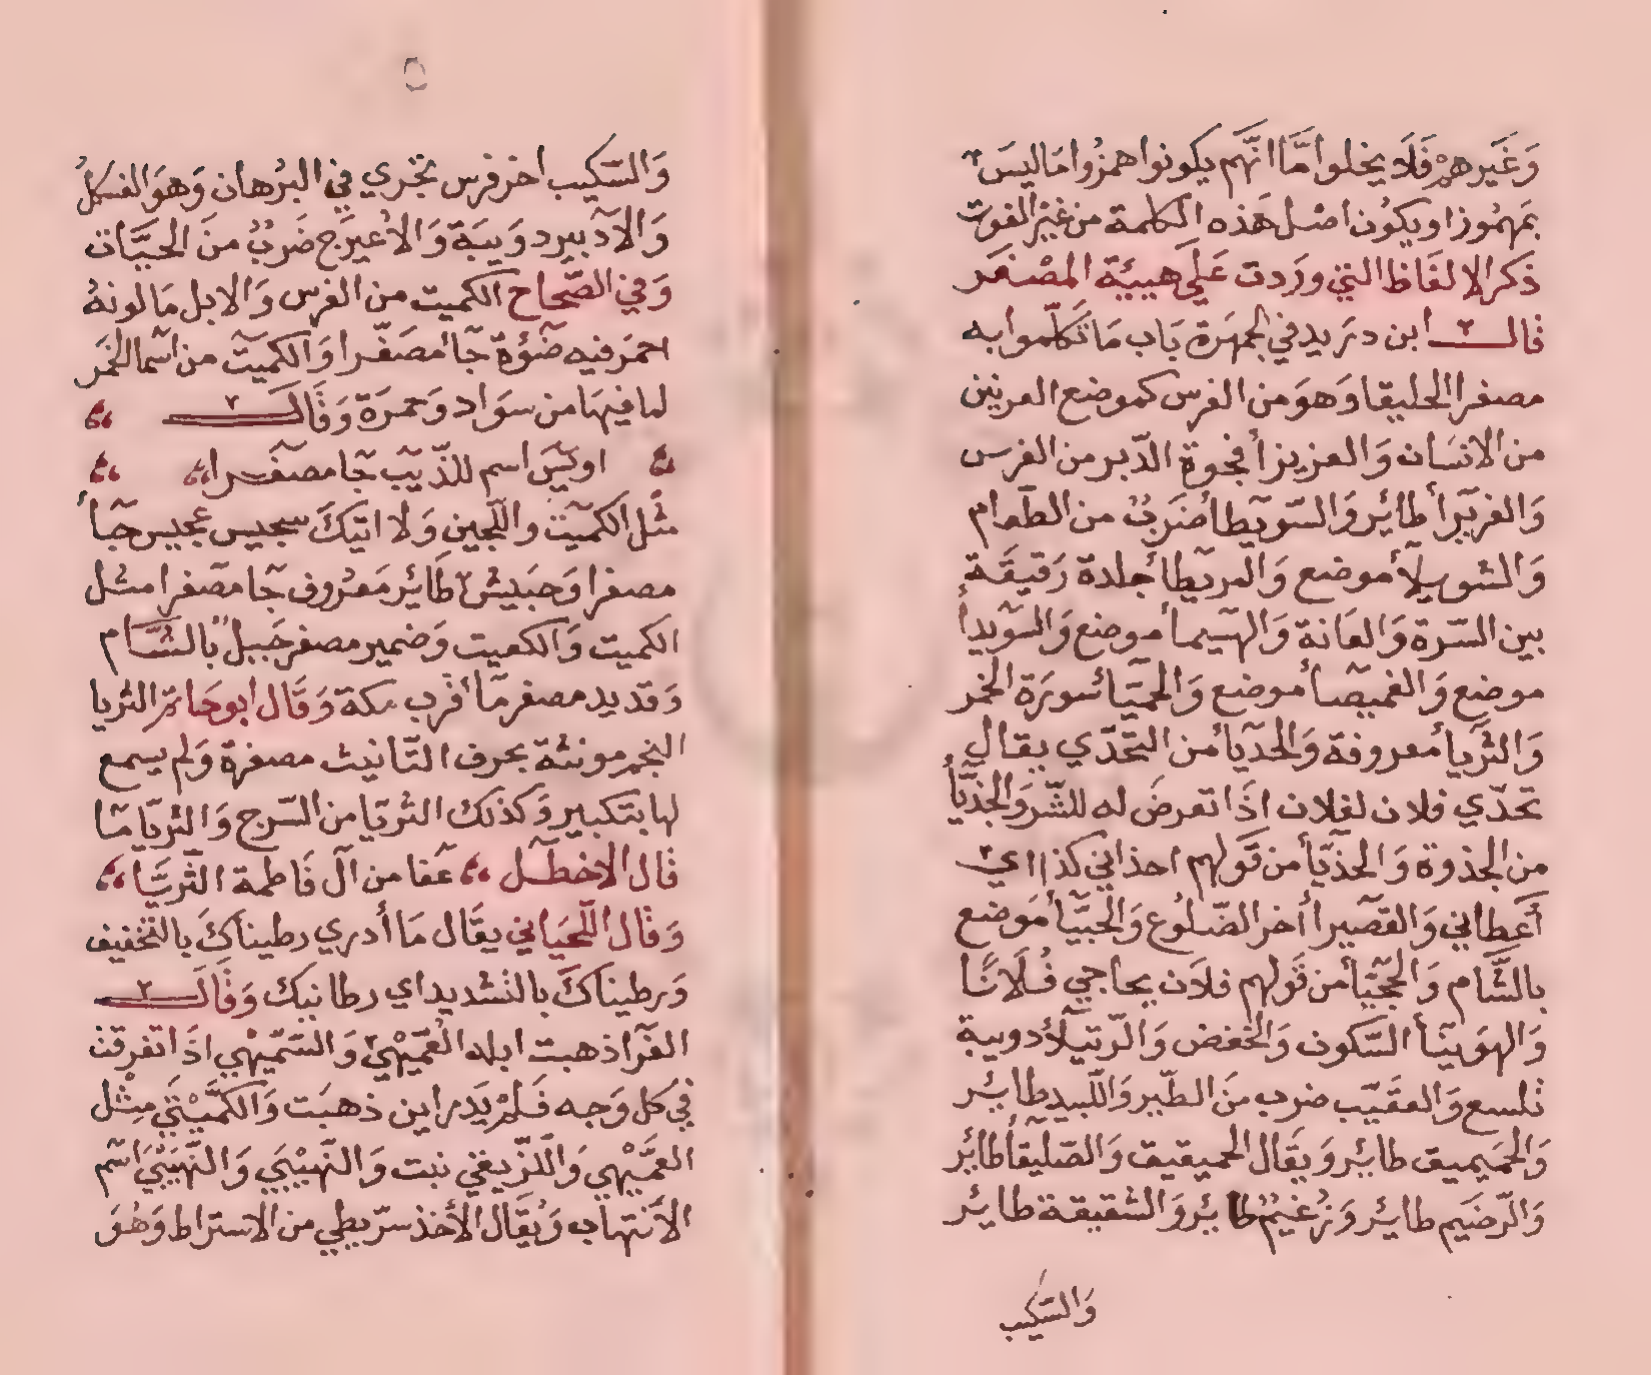 وَغَيرهمْ فَلَا يخلوا مَّا انَّهم يكونوا همزُوا مَا ليسَ
بَمهمُوز او يكوُن اصْل هَذه الكلمة من غيْر الفوت
ذكر الالفَاظ التي ورَدت عَلَى هيئة المصْغر
قَالــ ابن دريد في الجمهَرة بَاب مَا تَكلّموا به
مصغرا الحليقا وَهوَ من الفرس كموضع العرنين
من الانسَان وَالعزيزأ فجوة الدّبر من الفرس
وَالغريرأ طائر وَالسّويطأ ضرَبُ من الطّعام
وَالشويلآ موضع وَالمريطأ جلدة رَقيقَة
بين السّرة وَالعَانة وَالهَيمأ موضع وَالسّويدأ
موضع وَالغميصأ موضع وَالحميَّا سورَة الخمر
وَالثريأ معروفة وَالحديأ من التحدّي يقال
تحدّي فلان لفلان اذَا تعرضَ له للشّر وَالجذيّأ
من الجذوة وَالحذيّأ من قَولهم احذاني كذا اي
أعطاني وَالقصيرا أخر الضّلوُع وَالحبيّأ مَوضع
بالشّام وَالحجيّأ من قَولهم فلاَن يحاجي فُلَانًا
وَالهوَينأ السّكون وَالخفض وَالرّتيلأ دويبة
تلسع وَالعقَيّب ضرب منَ الطّير وَاللّبيد طايُر
وَالحَميميق طايُر وَيقَال الحميقيق وَالصّليقأ طائر
وَالرّضيَم طايُر وَزُغَيمُ طايُر وَالشقيقة طايُر
وَالسّكيب
٥
وَالسّكيب اخر فرس تجري في البرُهان وَهوَ الفسكلُ
وَالآدَيبر دوَيبَة وَالأعَيرج ضَربُ منَ الحيّات
وَفي الصّحاح الكميت من الفرس وَالابل مَا لونهُ
احمَر فيه ضَوُءة جَأ مصَغّرا وَالكميَت من اسمَا الخمَر
لما فيهَا من سوَاد وَحمرَة وَقَالَــ
اويَس اسم للذّيب جَا مصغَرا
مثْل الكميَت واللّجين وَلا اتيكَ سجيس عجيس جَأ
مصغرا وَحَبيش طَائر مَعرُوف جَا مصغرا مثل
الكميت وَالكعيت وَضمير مصغر جَبلُ بالشّام
وَقديد مصغر مَأ قُرب مكة وَقَال ابو حَاتم الثريا
النجم مونثة بحرف التّانيث مصغرة وَلم يسمع
لها بتكبير وَكذلك الثريَا من السّرج وَالثريّا مَا
قَال الاخطَل عَفا من آل فَاطمة الثّريّا
وَقَال اللّحيَاني يقَال مَا أدري رطيناكَ بالتخفيف
وَرطيناكَ بالتشديد اي رطانيك وَقَالَــ
الفَرّا ذهبت ابله العُمّيهْي وَالسّمّيهْي اذَا تفرقت
في كل وَجه فَلمْ يَدر اين ذهبَت وَالكمَّيْتي مثْل
العمَّيْهي وَاللّزّيغي نبت وَالنّهيْبَي وَالنّهَيْبَي اسَم
الاَنتهاب وَيُقَال الأخذ سرّيطي من الاستراط وَهُوَ